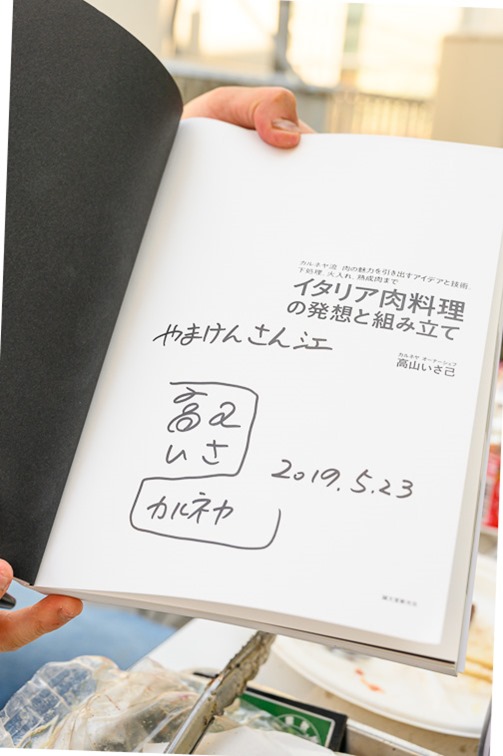 カルネヤ流 肉の魅力を引き出すアイデアと技術。
下処理、火入れ、熟成肉まで
イタリア肉料理
の発想と組み立て
カルネヤ オーナーシェフ
高山いさ己
やまけんさん江
高山
いさ
カルネヤ
2019.5.23
誠文堂新光社